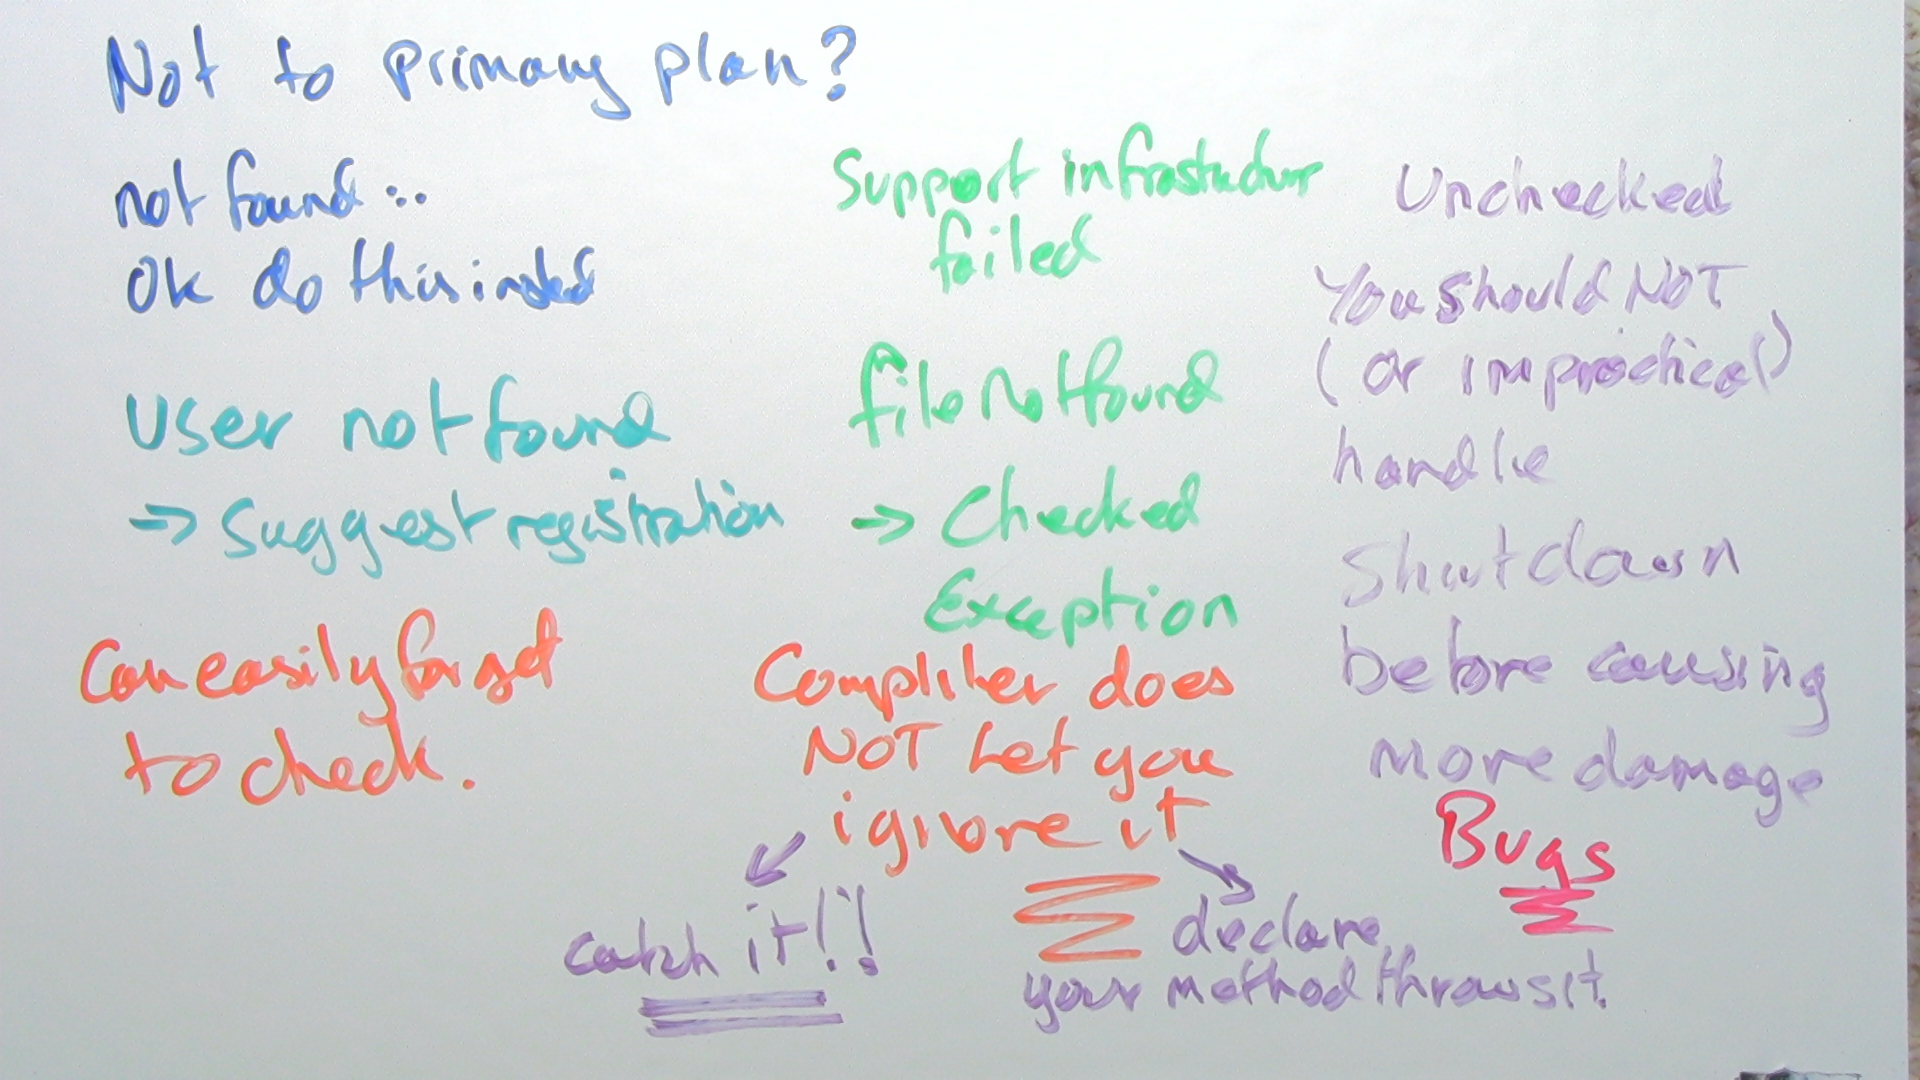 Not to primary plan?
not found :..
Ok do this instead
User not found
→ Suggest registration
Can easily forget
to check.
Support infrastuctur
failed
file not found
→ Checked
Exception
Compliler does
NOT Let you
ignore it
catch it!!
declare
your method throws it.
Unchecked
You should NOT
(or impractical)
handle
Shutdown
before causing
more damage
Bugs